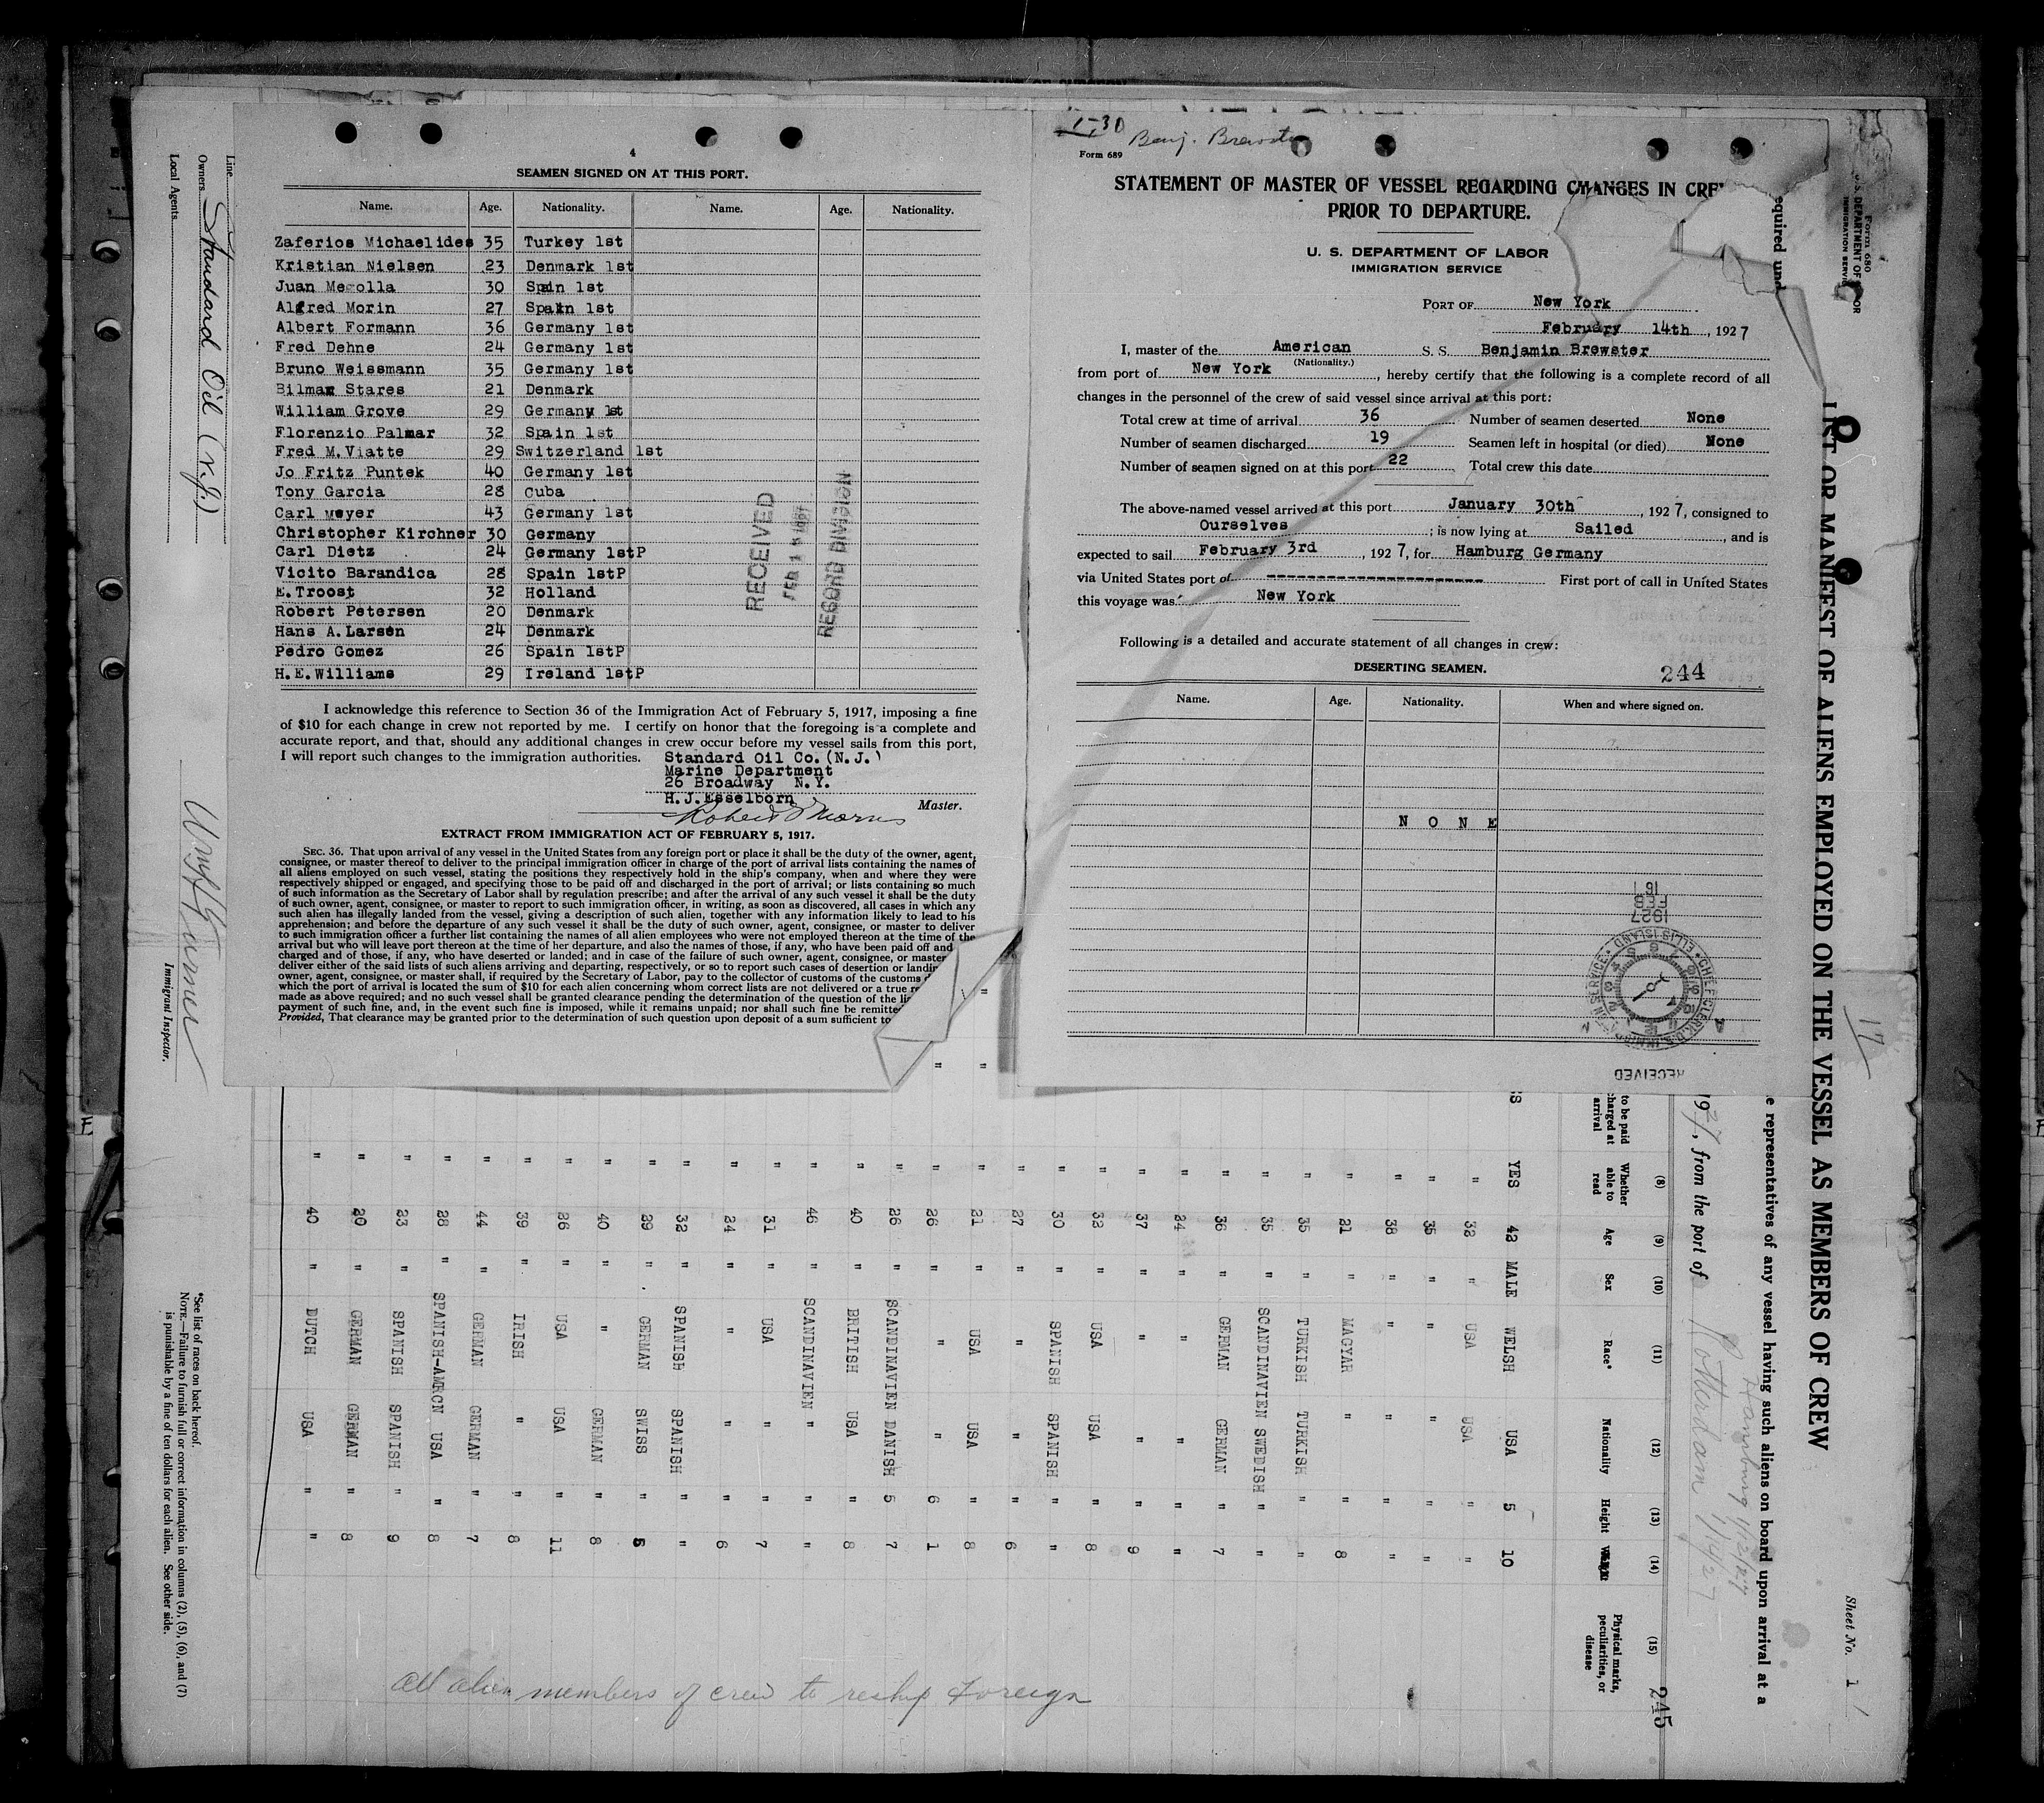 4
SEAMEN SIGNED ON AT THIS PORT.
Name. Age. Nationality. Name. Age. Nationality.
Zaferios Michaelides 35 Turkey 1st
Kristian Nielsen 23 Denmark 1st
Juan 30 Spain 1st
Alfred Morin 27 Spain 1st
Albert Formann 36 Germany 1st
Fred Dehne 24 Germany 1st
Bruno Weissmann 35 Germany 1st
Bilman Stares 21 Denmark
William Grove 29 Germany 1st
Florenzio Palmar 32 Spain 1st
Fred M.Viatte 29 Switzerland 1st
Jo Fritz Puntek 40 Germany 1st
Tony Garcia 28 Cuba
Carl meyer 43 Germany 1st
Christopher Kirchner 30 Germany
Carl Dietz 24 Germany 1stP
Vicito Barandica 28 Spain 1stP
E.Troost 32 Holland
Robert Petersen 20 Denmark
Hans A.Larsen 24 Denmark
Pedro Gomez 26 Spain 1stP
H.E.Williams 29 Ireland 1stP
RECEIVED
RECORD DIVISION
I acknowledge this reference to Section 36 of the Immigration Act of February 5, 1917, imposing a fine
of $10 for each change in crew not reported by me. I certify on honor that the foregoing is a complete and
accurate report, and that, should any additional changes in crew occur before my vessel sails from this port,
I will report such changes to the immigration authorities. Standard Oil Co.(N.J.)
Marine Department
26 Broadway N.Y.
H.J.Esselborn Master.
EXTRACT FROM IMMIGRATION ACT OF FEBRUARY 5, 1917.
SEC. 36. That upon arrival of any vessel in the United States from any foreign port or place it shall be the duty of the owner, agent,
consignee, or master thereof to deliver to the principal immigration officer in charge of the port of arrival lists containing the names of
all aliens employed on such vessel, stating the positions they respectively hold in the ship's company, when and where they were
respectively shipped or engaged, and specifying those to be paid off and discharged in the port of arrival; or lists containing so much
of such information as the Secretary of Labor shall by regulation prescribe; and after the arrival of any such vessel it shall be the duty
of such owner, agent, consignee, or master to report to such immigration officer, in writing, as soon as discovered, all cases in which any
such alien has illegally landed from the vessel, giving a description of such alien, together with any information likely to lead to his
apprehension; and before the departure of any such vessel it shall be the duty of such owner, agent, consignee, or master to deliver
to such immigration officer a further list containing the names of all alien employees who were not employed thereon at the time of the
arrival but who will leave port thereon at the time of her departure, and also the names of those, if any, who have been paid off and
charged and of those, if any, who have deserted or landed; and in case of the failure of such owner, agent, consignee, or master
deliver either of the said lists of such aliens arriving and departing, respectively, or so to report such cases of desertion or landin
owner, agent, consignee, or master shall, if required by the Secretary of Labor, pay to the collector of customs of the customs
which the port of arrival is located the sum of $10 for each alien concerning whom correct lists are not delivered or a true
made as above required; and no such vessel shall be granted clearance pending the determination of the question of the
payment of such fine, and, in the event such fine is imposed, while it remains unpaid; nor shall such fine be remitte
Provided, That clearance may be granted prior to the determination of such question upon deposit of a sum sufficient to
1-30 Benj. Brewster
Form 689
STATEMENT OF MASTER OF VESSEL REGARDING CHANGES IN CRE
PRIOR TO DEPARTURE.
U. S. DEPARTMENT OF LABOR
IMMIGRATION SERVICE
PORT OF New York
February 14th, 1927
I, master of the American S. S. Benjamin Brewster
(Nationality.)
from port of New York, hereby certify that the following is a complete record of all
changes in the personnel of the crew of said vessel since arrival at this port:
Total crew at time of arrival 36 Number of seamen deserted None
Number of seamen discharged 19 Seamen left in hospital (or died) None
Number of seamen signed on at this port 22 Total crew this date
The above-named vessel arrived at this port January 30th, 1927, consigned to
Ourselves; is now lying at Sailed, and is
expected to sail February 3rd, 1927, for Hamburg Germany
via United States port of ---------------------- First port of call in United States
this voyage was New York
Following is a detailed and accurate statement of all changes in crew:
DESERTING SEAMEN. 244
Name. Age. Nationality. When and where signed on.
N O N E
1927
FEB
16
RECEIVED
Form 680
U.S. DEPARTMENT OF LABOR
IMMIGRATION SERVICE
Sheet No. 1
LIST OR MANIFEST OF ALIENS EMPLOYED ON THE VESSEL AS MEMBERS OF CREW
17
equired und
e representatives of any vessel having such aliens on board upon arrival at a
Hamburg 1/12/27
1927, from the port of Rotterdam 1/14/27
245
(8) (9) (10) (11) (12) (13) (14) (15)
to be paid
charged at
arrival
Whether able to read Age Sex Race* Nationality Height Physical marks, peculiarities, or disease
YES 42 MALE WELSH USA 5 10
" 32 " USA USA " "
" 35 " " " " "
" 38 " " " " "
" 21 " MAGYAR " " 8
" 35 " TURKISH TURKISH " "
" 35 " SCANDINAVIEN SWEDISH " "
" 36 " GERMAN GERMAN " 7
" 24 " " " " "
" 37 " " " " 9
" 32 " USA USA " 8
" 30 " SPANISH SPANISH " "
" 27 " " " " 6
" 21 " USA USA " 8
" 26 " " " 6 1
" 26 " SCANDINAVIEN DANISH 5 7
" 40 " BRITISH USA " 8
" 46 " SCANDINAVIEN " " "
" 31 " USA " " 7
" 24 " " " " 6
" 32 " SPANISH SPANISH " "
" 29 " GERMAN SWISS " 5
" 40 " " GERMAN " 8
" 26 " USA USA " 11
" 39 " IRISH " " 8
" 44 " GERMAN GERMAN " 7
" 28 " SPANISH-AMRCN USA " 8
" 23 " SPANISH SPANISH " 9
" 20 " GERMAN GERMAN " 8
" 40 " DUTCH USA " "
All alien members of crew to reship Foreign
Line
Owners Standard Oil (N.J.)
Local Agents
Immigrant Inspector.
*See list of races on back hereof.
NOTE.—Failure to furnish full or correct information in columns (2), (5), (6), and (7)
is punishable by a fine of ten dollars for each alien. See other side.